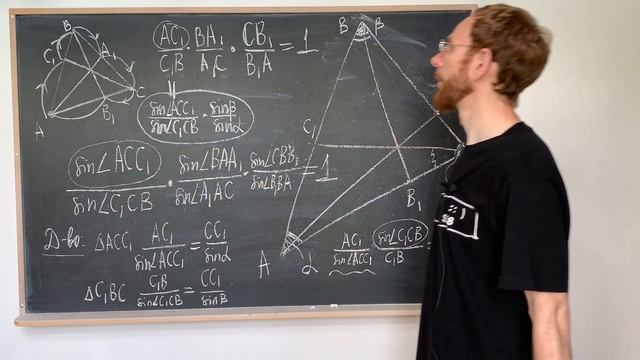 B
C₁
A₁
C
B₁
A
AC₁/C₁B · BA₁/A₁C · CB₁/B₁A = 1
sin∠ACC₁/sin∠C₁CB · sinβ/sinα
sin∠ACC₁/sin∠C₁CB · sin∠BAA₁/sin∠A₁AC · sin∠CBB₁/sin∠B₁BA = 1
Д-во: ΔACC₁ AC₁/sin∠ACC₁ = CC₁/sinα
ΔC₁BC C₁B/sin∠C₁CB = CC₁/sinβ
B β
C₁
B₁
A α
AC₁/sin∠ACC₁ sin∠C₁CB/C₁B =